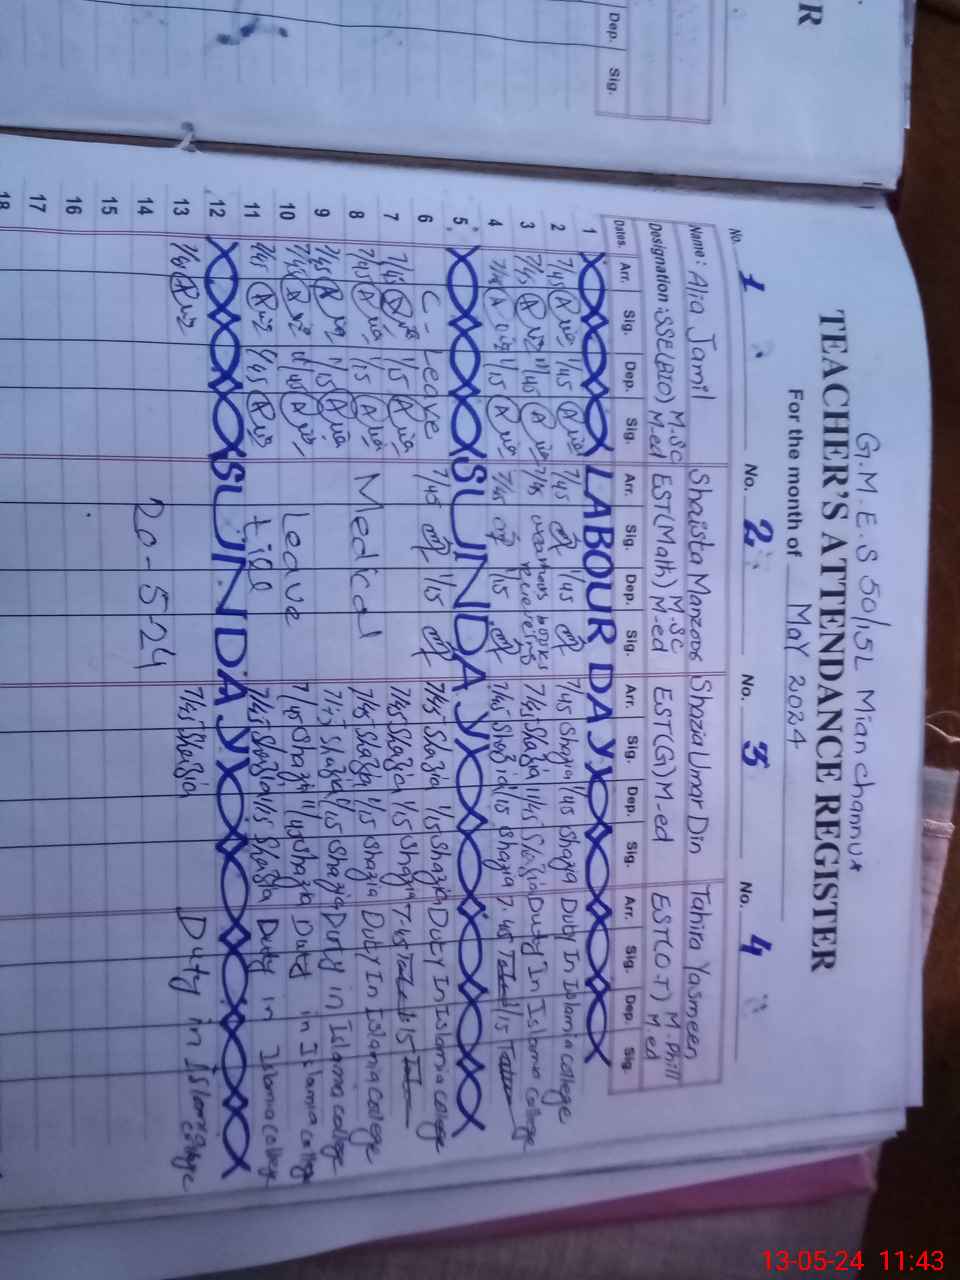 R
Dep. Sig.
G.M.E.S 50/15L Mian channux
TEACHER'S ATTENDANCE REGISTER
For the month of MaY 2024
No. 1 No. 2 No. 3 No. 4
Name: Alia Jamil Shaista Manzoor Shazia Umar Din Tahira Yasmeen
M.SC M.SC M.Phill
Designation: SSE(BIO) M-ed EST(Math) M-ed EST(G) M-ed EST(O.T) M.ed
Dates. Arr. Sig. Dep. Sig. Arr. Sig. Dep. Sig. Arr. Sig. Dep. Sig. Arr. Sig. Dep. Sig.
1 LABOUR DAY
2 7/45 1/45 7/45 1/45 7/45 Shazia 1/45 Shazia Duty In Islamia college
3 7/45 11/45 7/45 books 7/45 Shazia 11/45 Shazia Duty In Islamia College
4 7/45 1/15 7/45 1/15 7/45 Shazia 1/15 Shazia 7.45 1/15
5 SUNDAY
6 C-Leave 7/45 1/15 7/45 Shazia 1/15 Shazia Duty In Islamia college
7 7/45 1/15 7/45 Shazia 1/15 Shazia 7.45 1/15
8 7/45 1/15 Medical 7/45 Shazia 1/15 Shazia Duty In Islamia College
9 7/45 1/15 7/45 Shazia 1/15 Shazia Duty in Islamia college
10 7/45 11/45 Leave 7/45 Shazia 11/45 Shazia Duty in Islamia college
11 7/45 1/45 till 7/45 Shazia 1/15 Shazia Duty in Islamia college
12 SUNDAY
13 7/45 7/45 Shazia Duty in Islamia college
14 20-5-24
15
16
17
18
13-05-24 11:43